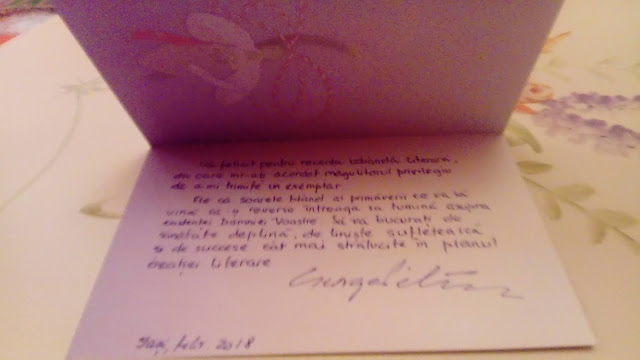 Vă felicit pentru recenta izbândă literară,
din care mi-ați acordat măgulitorul privilegiu
de a-mi trimite un exemplar.
Fie ca soarele blând al primăverii ce va să
vină să-și reverse întreaga sa lumină asupra
existenței Domniei Voastre. Să vă bucurați de
sănătate deplină, de liniște sufletească
și de succese cât mai strălucite în planul
creației literare
Iași, febr. 2018